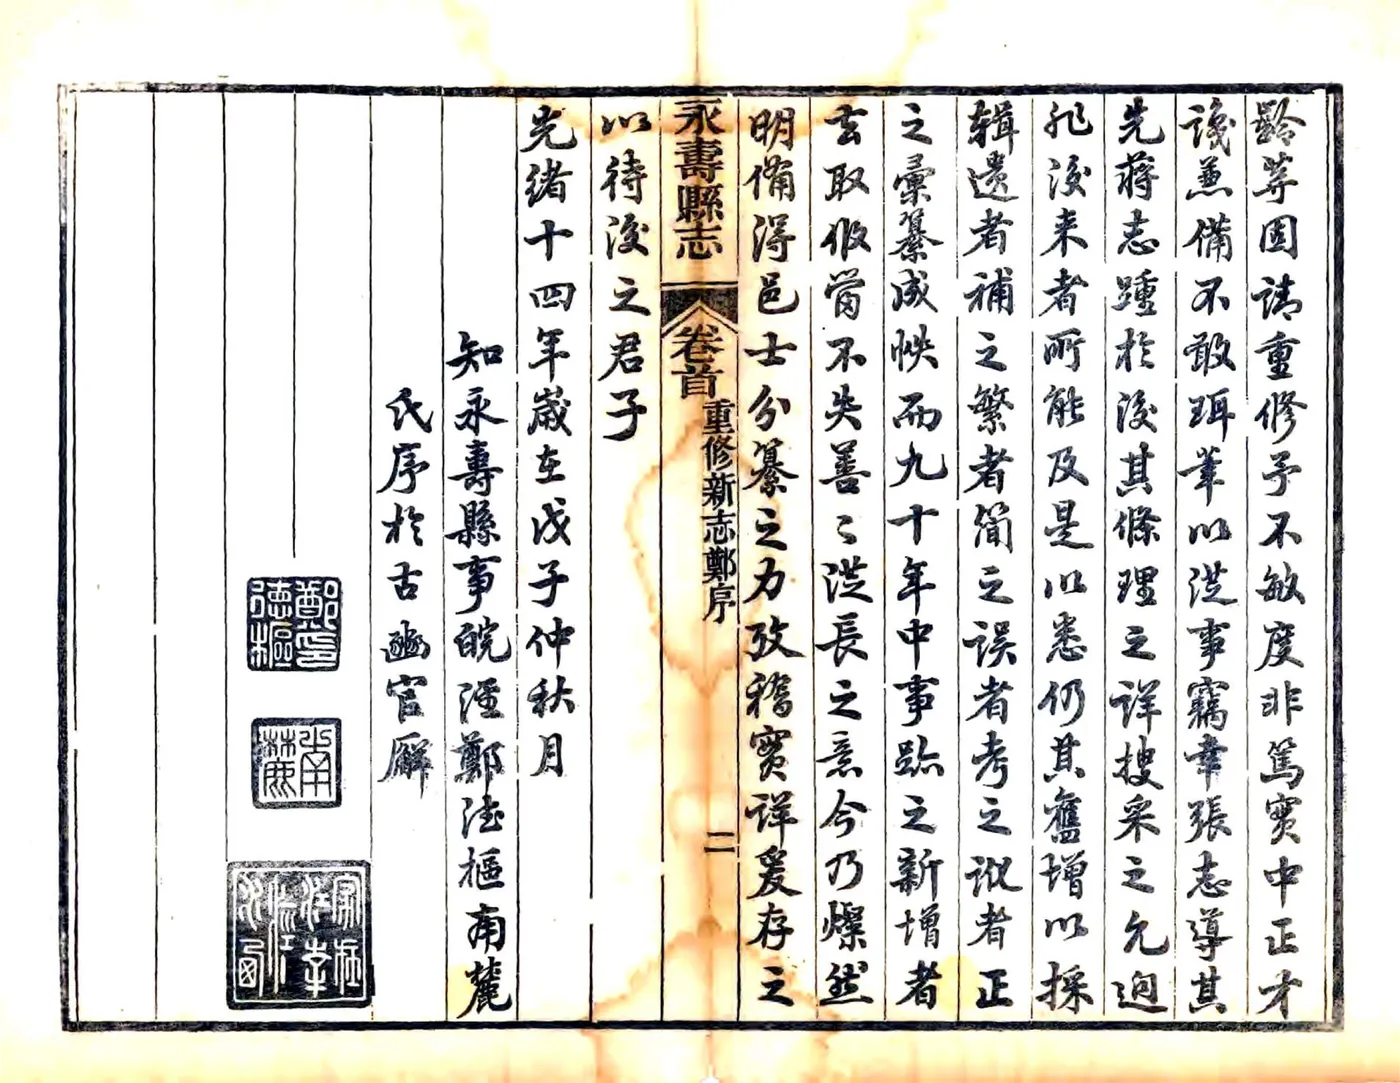 齡等固請重修予不敏度非篤實中正才
識兼備不敢珥筆以従事竊幸張志導其
先蔣志踵於後其條理之詳搜采之允迥
非後来者所能及是以悉仍其舊增以採
輯遺者補之繁者簡之误者考之訛者正
之彙纂成帙而九十年中事跡之新增者
去取㑹不失善〻従長之意今乃燦然
明備得邑士分纂之力攷稽實詳爰存之
永壽縣志
卷首
重修新志鄭序
二
以待後之君子
光緒十四年歲在戊子仲秋月
知永壽縣事皖涇鄭德樞南麓
氏序於古豳官廨
鄭印德樞
南麓